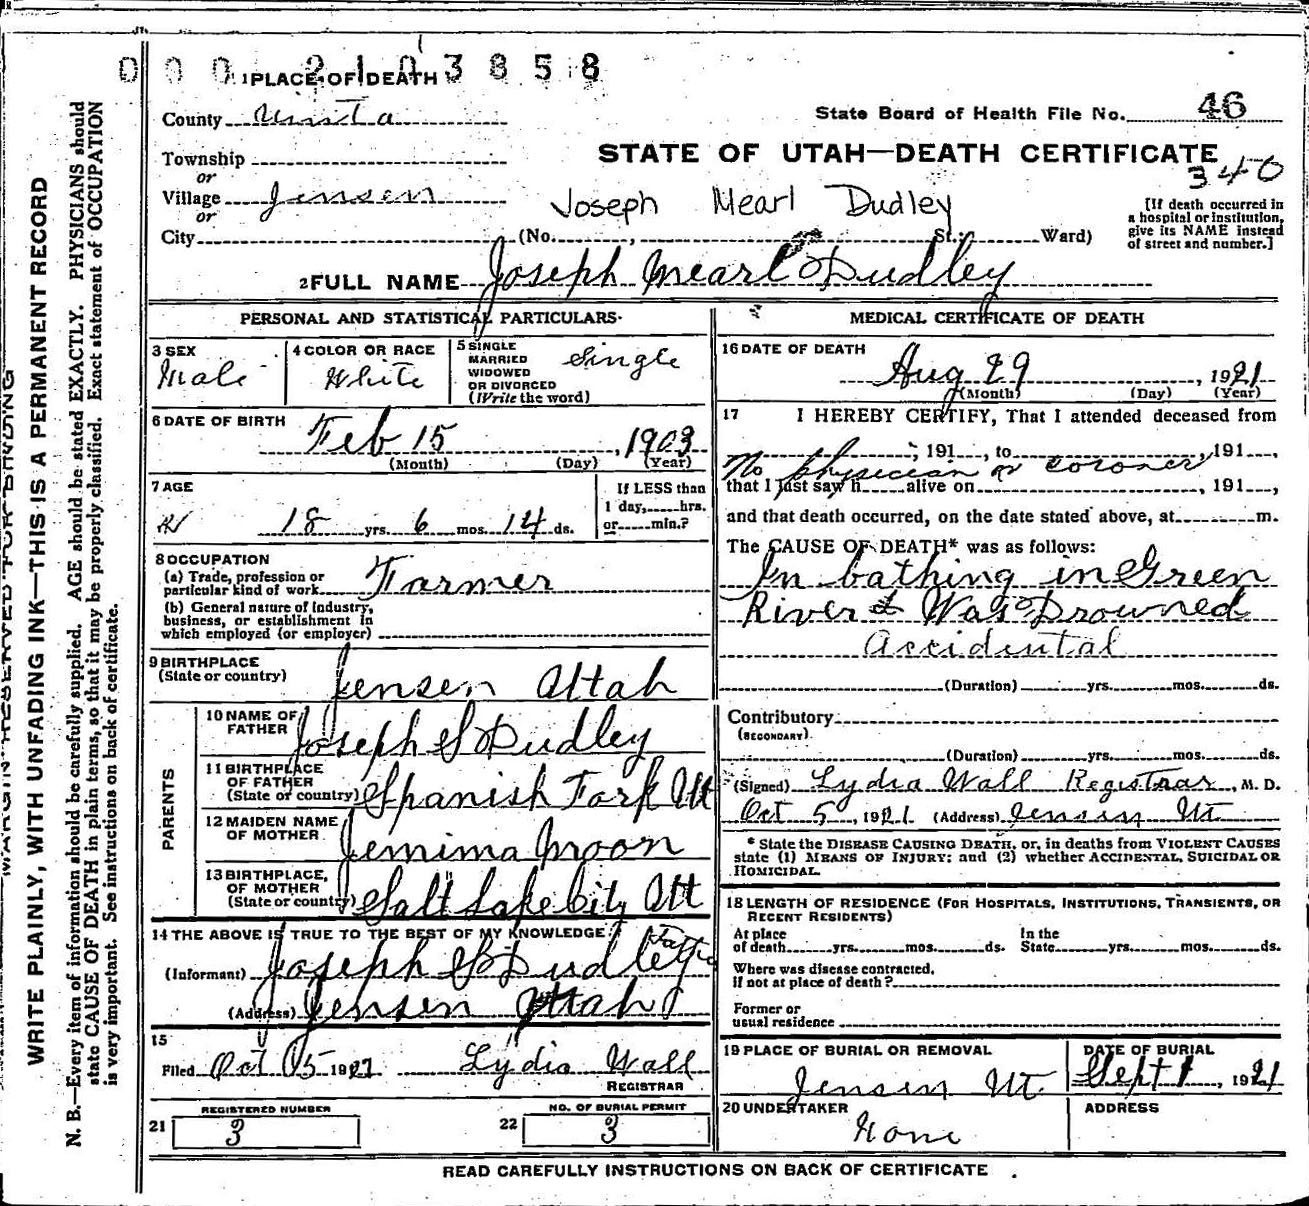 0 0 0 2 1 0 3 8 5 8
1 PLACE OF DEATH
County Uinta
State Board of Health File No. 46
STATE OF UTAH—DEATH CERTIFICATE
340
Township
or
Village Jensen
or
City
Joseph Mearl Dudley
(No. , St.; Ward)
[If death occurred in
a hospital or institution,
give its NAME instead
of street and number.]
2 FULL NAME Joseph Mearl Dudley
PERSONAL AND STATISTICAL PARTICULARS
3 SEX
Male
4 COLOR OR RACE
White
5 SINGLE
MARRIED
WIDOWED
OR DIVORCED
(Write the word)
Single
6 DATE OF BIRTH
Feb 15, 1903
(Month) (Day) (Year)
7 AGE
18 yrs. 6 mos. 14 ds.
If LESS than
1 day, hrs.
or min.?
8 OCCUPATION
(a) Trade, profession or
particular kind of work Farmer
(b) General nature of Industry,
business, or establishment in
which employed (or employer)
9 BIRTHPLACE
(State or country)
Jensen Uttah
PARENTS
10 NAME OF
FATHER
Joseph S Dudley
11 BIRTHPLACE
OF FATHER
(State or country) Spanish Fork Utt
12 MAIDEN NAME
OF MOTHER
Jemima Moon
13 BIRTHPLACE,
OF MOTHER
(State or country) Salt Lake City Utt
14 THE ABOVE IS TRUE TO THE BEST OF MY KNOWLEDGE
(Informant) Joseph S Dudley
(Address) Jensen Uttah
15
Filed Oct 5 1921 Lydia Wall
REGISTRAR
21 REGISTERED NUMBER
3
22 NO. OF BURIAL PERMIT
3
MEDICAL CERTIFICATE OF DEATH
16 DATE OF DEATH
Aug 29, 1921
(Month) (Day) (Year)
17 I HEREBY CERTIFY, That I attended deceased from
, 191 , to , 191 ,
No physician or coroner
that I last saw h alive on , 191 ,
and that death occurred, on the date stated above, at m.
The CAUSE OF DEATH* was as follows:
In bathing in Green
River & Was Drowned
Accidental
(Duration) yrs. mos. ds.
Contributory
(SECONDARY)
(Duration) yrs. mos. ds.
(Signed) Lydia Wall Registrar, M. D.
Oct 5, 1921 (Address) Jensen Ut.
* State the DISEASE CAUSING DEATH, or, in deaths from VIOLENT CAUSES
state (1) MEANS OF INJURY; and (2) whether ACCIDENTAL, SUICIDAL OR
HOMICIDAL.
18 LENGTH OF RESIDENCE (FOR HOSPITALS, INSTITUTIONS, TRANSIENTS, OR
RECENT RESIDENTS)
At place
of death yrs. mos. ds.
In the
State yrs. mos. ds.
Where was disease contracted,
if not at place of death?
Former or
usual residence
19 PLACE OF BURIAL OR REMOVAL
Jensen Ut
DATE OF BURIAL
Sept 1, 1921
20 UNDERTAKER
None
ADDRESS
READ CAREFULLY INSTRUCTIONS ON BACK OF CERTIFICATE
MARGIN RESERVED FOR BINDING
WRITE PLAINLY, WITH UNFADING INK—THIS IS A PERMANENT RECORD
N. B.—Every item of information should be carefully supplied. AGE should be stated EXACTLY. PHYSICIANS should
state CAUSE OF DEATH in plain terms, so that it may be properly classified. Exact statement of OCCUPATION
is very important. See instructions on back of certificate.